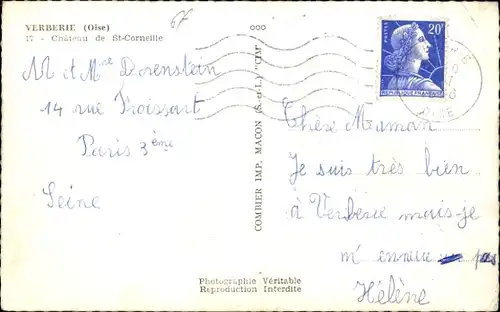 VERBERIE (Oise)
17 - Château de St-Corneille
67
M et Mme Dorenstein
14 rue Froissart
Paris 3ème
Seine
COMBIER IMP. MACON (S.-et-L.) "CIM"
POSTES
20F
REPUBLIQUE FRANÇAISE
OISE
Chère Maman
Je suis très bien
à Verberie mais je
m'ennuie pas
Hélène
Photographie Véritable
Reproduction Interdite